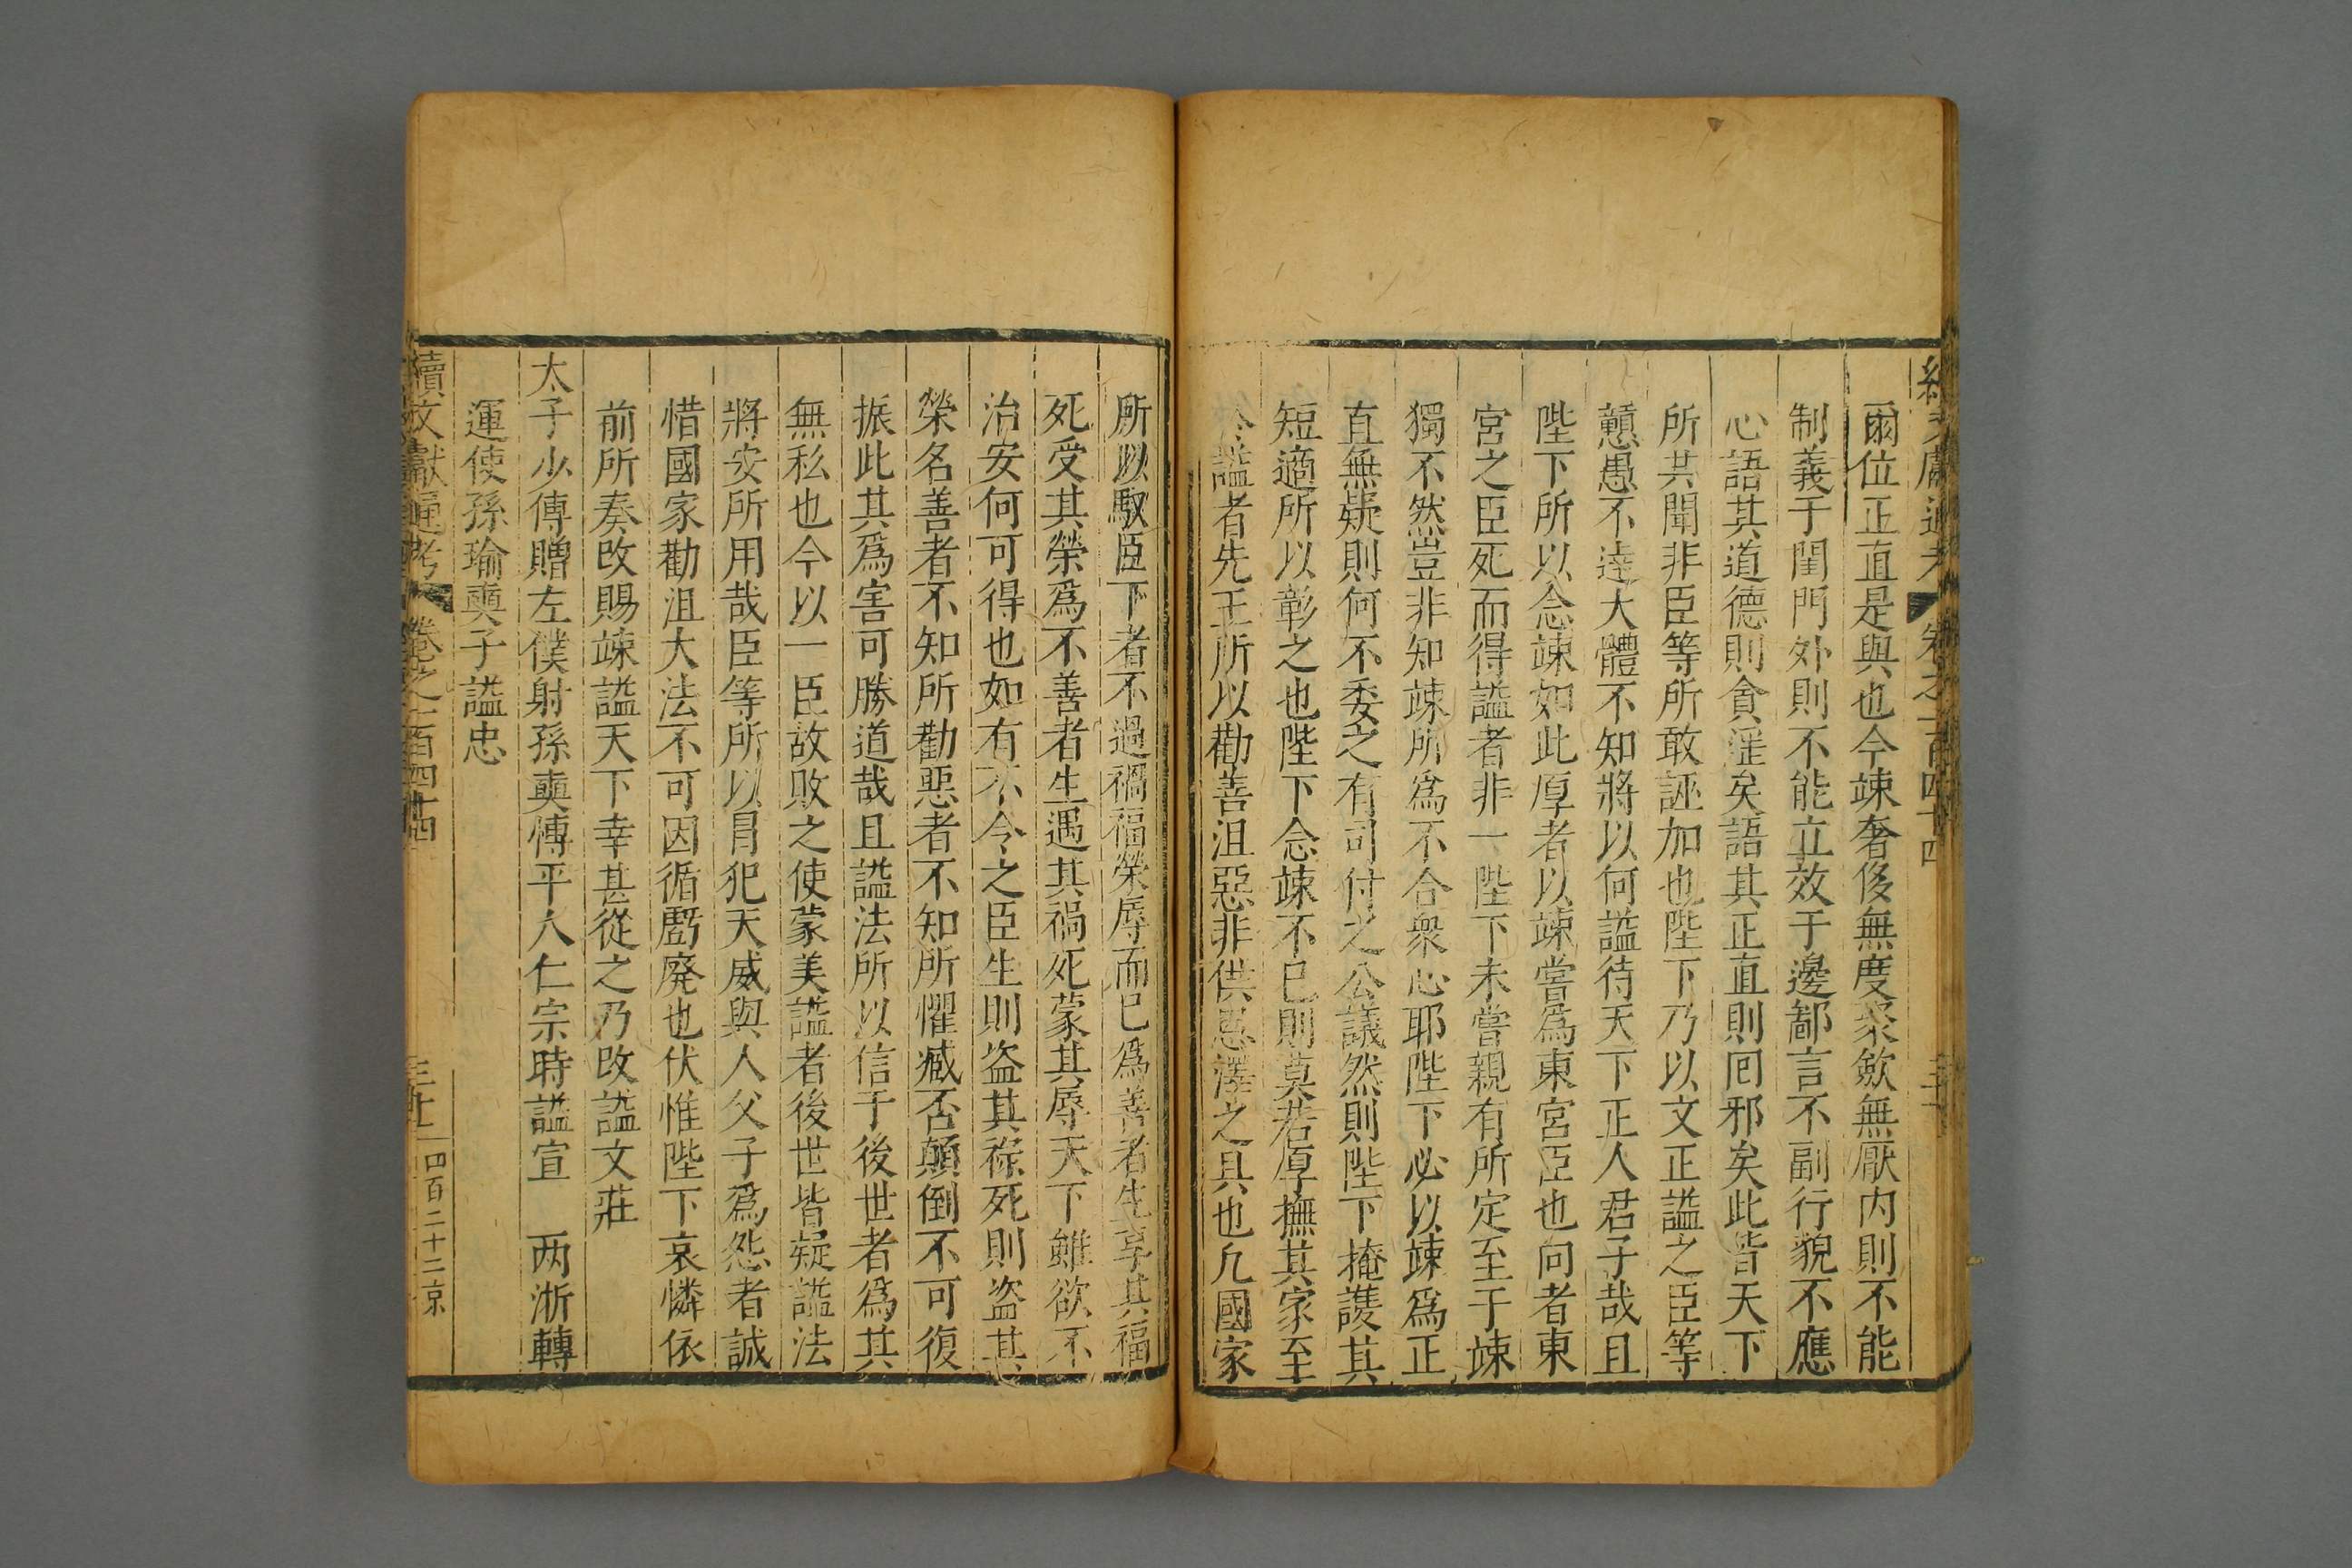 爾位正直是與也今竦奢侈無度聚斂無厭内則不能
制義于閨門外則不能立效于邊鄙言不副行貌不應
心語其道德則貪淫矣語其正直則回邪矣此皆天下
所共聞非臣等所敢誣加也陛下乃以文正謚之臣等
戇愚不達大體不知將以何謚待天下正人君子哉且
陛下所以念竦如此厚者以竦嘗爲東宮臣也向者東
宮之臣死而得謚者非一陛下未嘗親有所定至于竦
獨不然豈非知竦所爲不合衆心耶陛下必以竦爲正
直無疑則何不委之有司付之公議然則陛下掩護其
短適所以彰之也陛下念竦不已則莫若厚撫其家至
於謚者先王所以勸善沮惡非供恩澤之具也凡國家
所以馭臣下者不過禍福榮辱而已爲善者生享其福
死受其榮爲不善者生遇其禍死蒙其辱天下雖欲不
治安何可得也如有不令之臣生則盗其祿死則盗其
榮名善者不知所勸惡者不知所懼臧否顛倒不可復
振此其爲害可勝道哉且謚法所以信于後世者爲其
無私也今以一臣故敗之使蒙美謚者後世皆疑謚法
將安所用哉臣等所以冒犯天威與人父子爲怨者誠
惜國家勸沮大法不可因循虧廢也伏惟陛下哀憐依
前所奏改賜竦謚天下幸甚從之乃改謚文莊
太子少傅贈左僕射孫奭博平人仁宗時謚宣　两浙轉
運使孫瑜奭子謚忠
續文獻通考　卷之一百四十四　四百二十二京